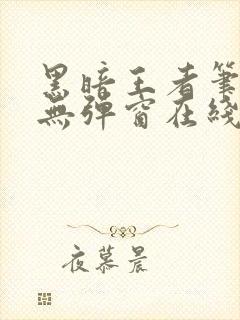 黑暗王者筆
無彈窗在綫
夜慕晨